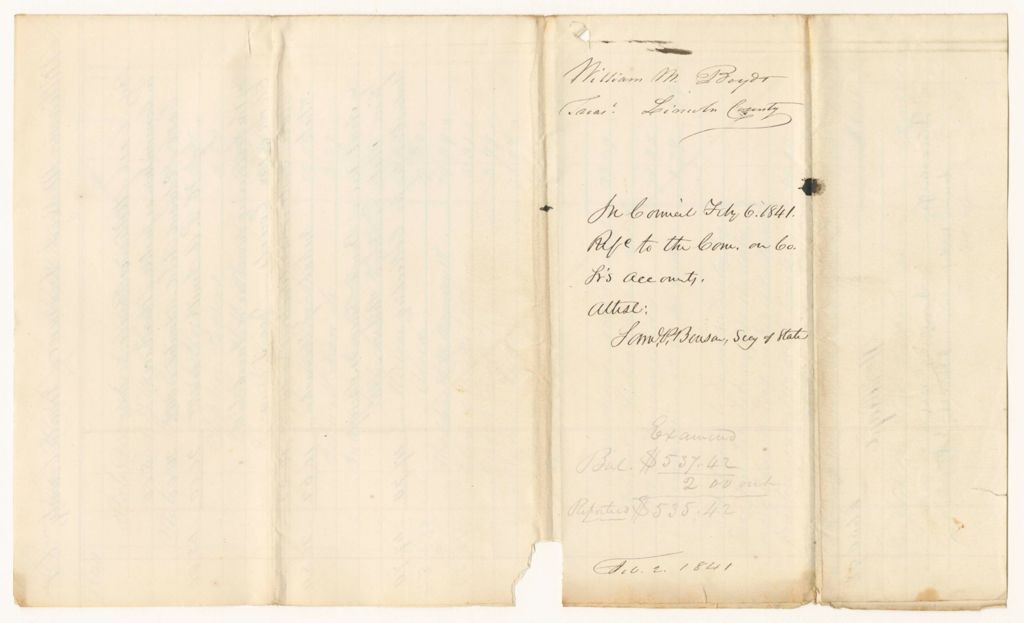 William M. Boyd
Treasr Lincoln County
In Council Feby 6. 1841.
Refd to the Com. on Co.
Tr's accounts.
Attest:
Saml P. Benson, Secy of State
Examined
Bal. $537.42
2 00 out
Reported $535.42
Feb. 2. 1841